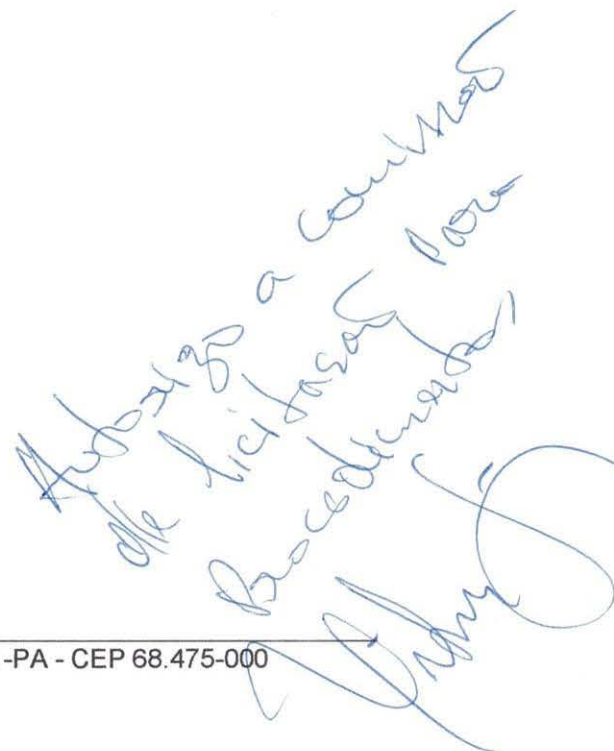 Autorizo a comissão
de licitação para
Procedimentos
-PA - CEP 68.475-000